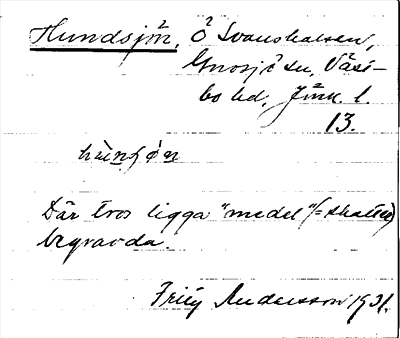 Hundsjön, Ö Svanshalsen,
Gnosjö sn, Västbo hd, Jönk. l.
13.
hùnʃø̀n
Där tros ligga "medel" (= skatter)
begravda.
Frity Andersson 1931.